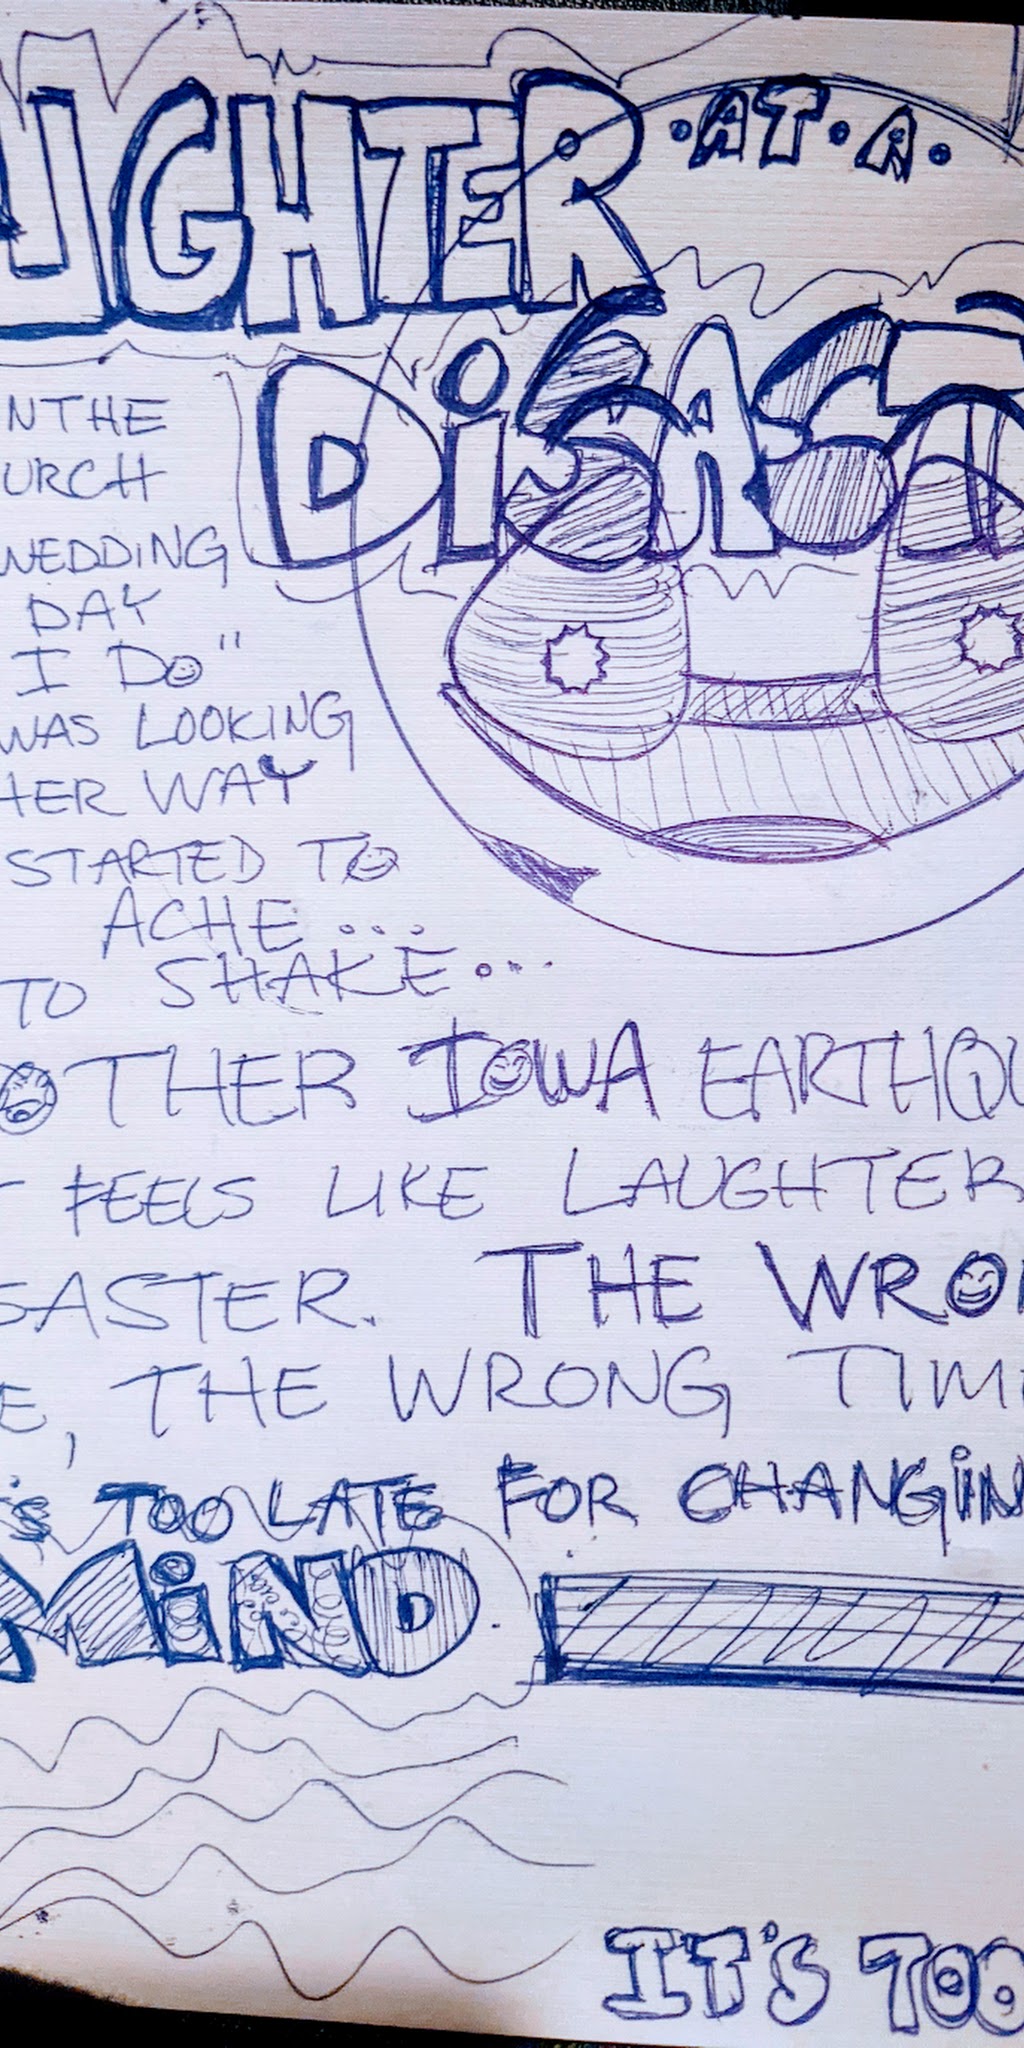 UGHTER ·AT·A·
DiSAST
N THE
URCH
WEDDiNG
DAY
I DO"
WAS LOOKING
HER WAY
STARTED TO
ACHE...
TO SHAKE...
OTHER IOWA EARTHQU
FEELS LIKE LAUGHTER
SASTER. THE WRON
E, THE WRONG TIME
's TOO LATE FOR CHANGiN
MiND
IT'S TOO